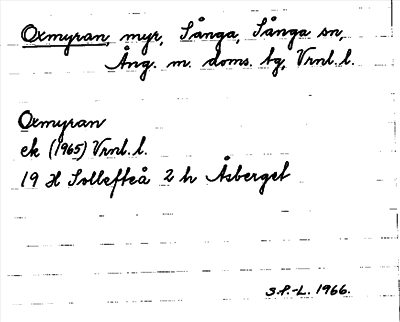 Oxmyran, myr, Sånga, Sånga sn,
Ång. m. doms. bg, Vrnl. l.
Oxmyran
ek (1965) Vrnl. l.
19 H Sollefteå 2 h Åsberget
S.P.-L. 1966.